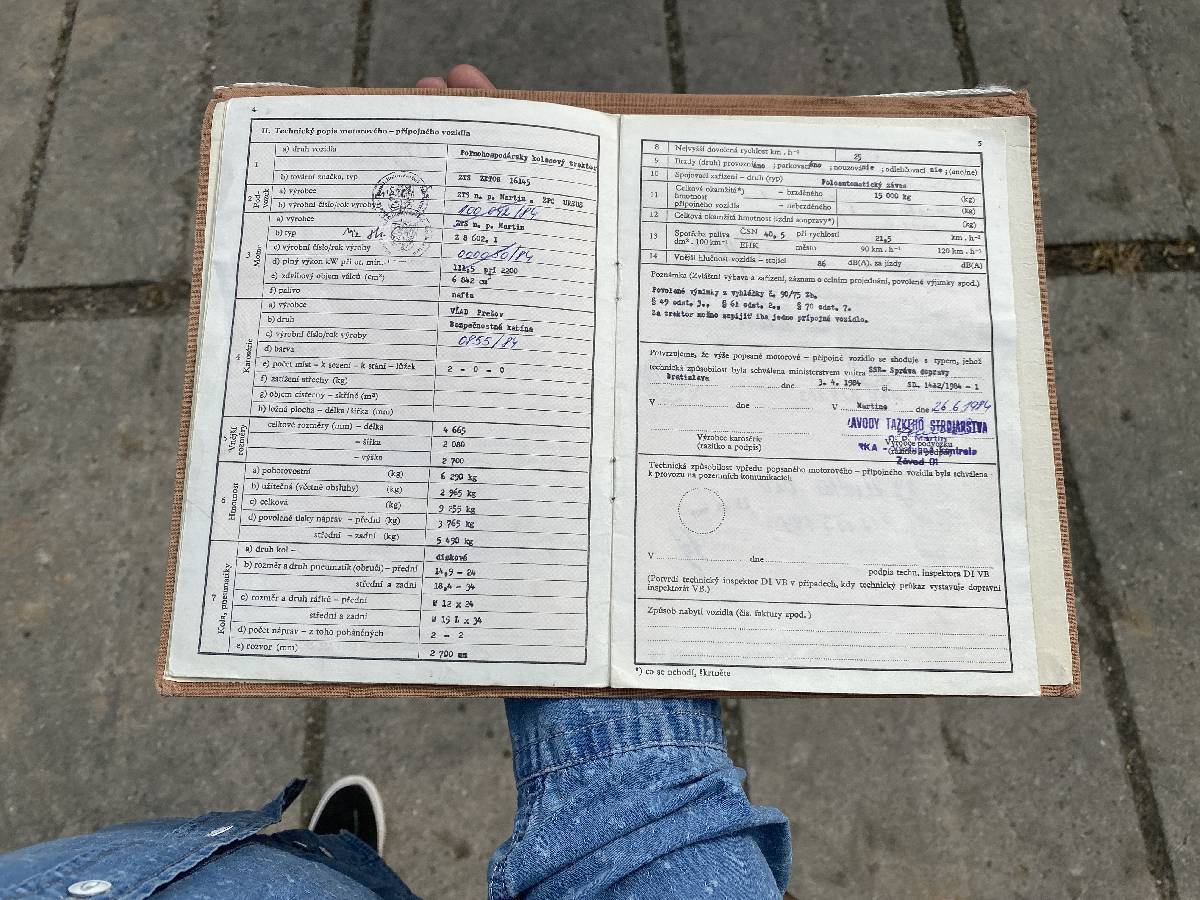 4
II. Technický popis motorového – přípojného vozidla
1
a) druh vozidla Poľnohospodársky kolesový traktor
b) tovární značka, typ ZTS ZETOR 16145
2
a) výrobce ZTS n. p. Martin a ZPC URSUS
b) výrobní číslo/rok výroby /84
3 Motor
a) výrobce ZTS n. p. Martin
b) typ Z 8 602. 1
c) výrobní číslo/rok výroby /84
d) plný výkon kW při ot. min. pri 2200
e) zdvihový objem válců (cm³) 6 842 cm³
f) palivo nafta
4 Karosérie
a) výrobce VÚAD Prešov
b) druh Bezpečnostná kabína
c) výrobní číslo/rok výroby 0855/84
d) barva
e) počet míst – k sezení – k stání – lůžek 2 - 0 - 0
f) zatížení střechy (kg)
g) objem cisterny – skříně (m³)
h) ložná plocha – délka/šířka (mm)
5 Vnější rozměry
celkové rozměry (mm) – délka 4 665
– šířka 2 080
– výška 2 700
6 Hmotnost
a) pohotovostní (kg) 6 290 kg
b) užitečná (včetně obsluhy) (kg) 2 965 kg
c) celková (kg) 9 255 kg
d) povolené tlaky náprav – přední (kg) 3 765 kg
střední – zadní (kg) 5 490 kg
7 Kola, pneumatiky
a) druh kol – diskové
b) rozměr a druh pneumatik (obručí) – přední 14,9 - 24
střední a zadní 18,4 - 34
c) rozměr a druh ráfků – přední W 12 x 24
střední a zadní W 15 L x 34
d) počet náprav – z toho poháněných 2 - 2
e) rozvor (mm) 2 700 mm
5
8 Nejvyšší dovolená rychlost km . h⁻¹ 25
9 Brzdy (druh) provozní áno ; parkovací áno ; nouzová nie ; odlehčovací nie ; (ano/ne)
10 Spojovací zařízení – druh (typ) Poloautomatický záves
11 Celková okamžitá*) – brzděného 15 000 kg (kg)
hmotnost
přípojného vozidla – nebrzděného (kg)
12 Celková okamžitá hmotnost jízdní soupravy*) (kg)
13 Spotřeba paliva ČSN 40,5 při rychlosti 21,5 km . h⁻¹
dm³ . 100 km⁻¹ EHK město 90 km . h⁻¹ 120 km . h⁻¹
14 Vnější hlučnost vozidla – stojící 86 dB(A), za jízdy dB(A)
Poznámka (Zvláštní výbava a zařízení, záznam o celním projednání, povolené výjimky apod.)
Povolené výnimky z vyhlášky č. 90/75 Zb.
§ 49 odst. 3., § 61 odst. 2., § 70 odst. 7.
Za traktor možno zapojiť iba jedno prípojné vozidlo.
Potvrzujeme, že výše popsané motorové – přípojné vozidlo se shoduje s typem, jehož
technická způsobilost byla schválena ministerstvem vnitra SSR- Správa dopravy
Bratislava dne 3. 4. 1984 čj. SD. 1422/1984 - 1
V dne V Martine dne 26.6.1984
ÁVODY ŤAŽKÉHO STROJÁRSTVA
n. p. Martin
Závod 01
Výrobce karosérie
(razítko a podpis)
Výrobce podvozku
(razítko a podpis)
Technická způsobilost vpředu popsaného motorového – přípojného vozidla byla schválena
k provozu na pozemních komunikacích
V dne
podpis techn. inspektora DI VB
(Potvrdí technický inspektor DI VB v případech, kdy technický průkaz vystavuje dopravní
inspektorát VB.)
Způsob nabytí vozidla (čís. faktury apod.)
*) co se nehodí, škrtněte